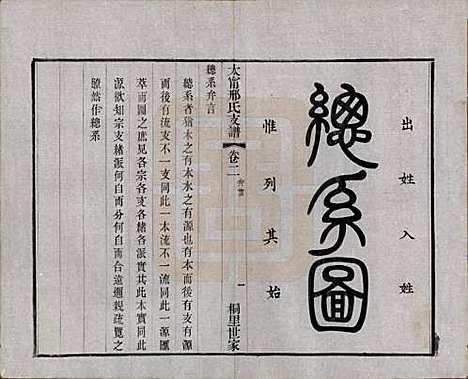 出姓入姓
總系圖
惟列其始
太甯邢氏支譜
卷二
弁言
一
桐里世家
總系弁言
總系者猶木之有本水之有源也有本而後有支有源
而後有流支不一支同此一本流不一流同此一源匯
萃而圖之庶見各宗各支各緒各派實共此本實同此
源欲知宗支緒派何自而分何自而合遠邇親疏覽之
瞭然作總系